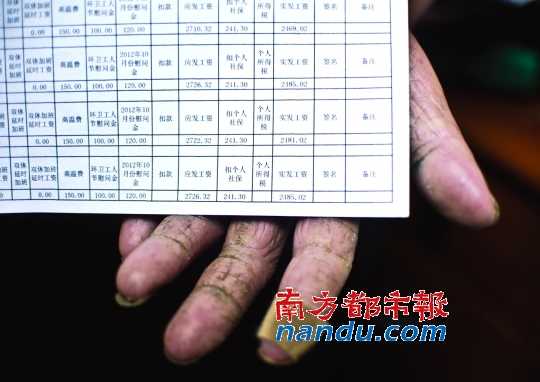 0.00 150.00 100.00 120.00 2710.32 241.30 2469.02
双休加班 双休加班延时工资 高温费 环卫工人节慰问金 2012年10月份慰问金 扣款 应发工资 扣个人社保 个人所得税 实发工资 签名 备注
0.00 150.00 100.00 120.00 2726.32 241.30 2485.02
双休延时加班 双休加班延时工资 高温费 环卫工人节慰问金 2012年10月份慰问金 扣款 应发工资 扣个人社保 个人所得税 实发工资 签名 备注
0.00 150.00 100.00 120.00 2722.32 241.30 2481.02
双休延时加班 双休加班延时工资 高温费 环卫工人节慰问金 2012年10月份慰问金 扣款 应发工资 扣个人社保 个人所得税 实发工资 签名 备注
0.00 150.00 100.00 120.00 2726.32 241.30 2485.02
南方都市報
nandu.com